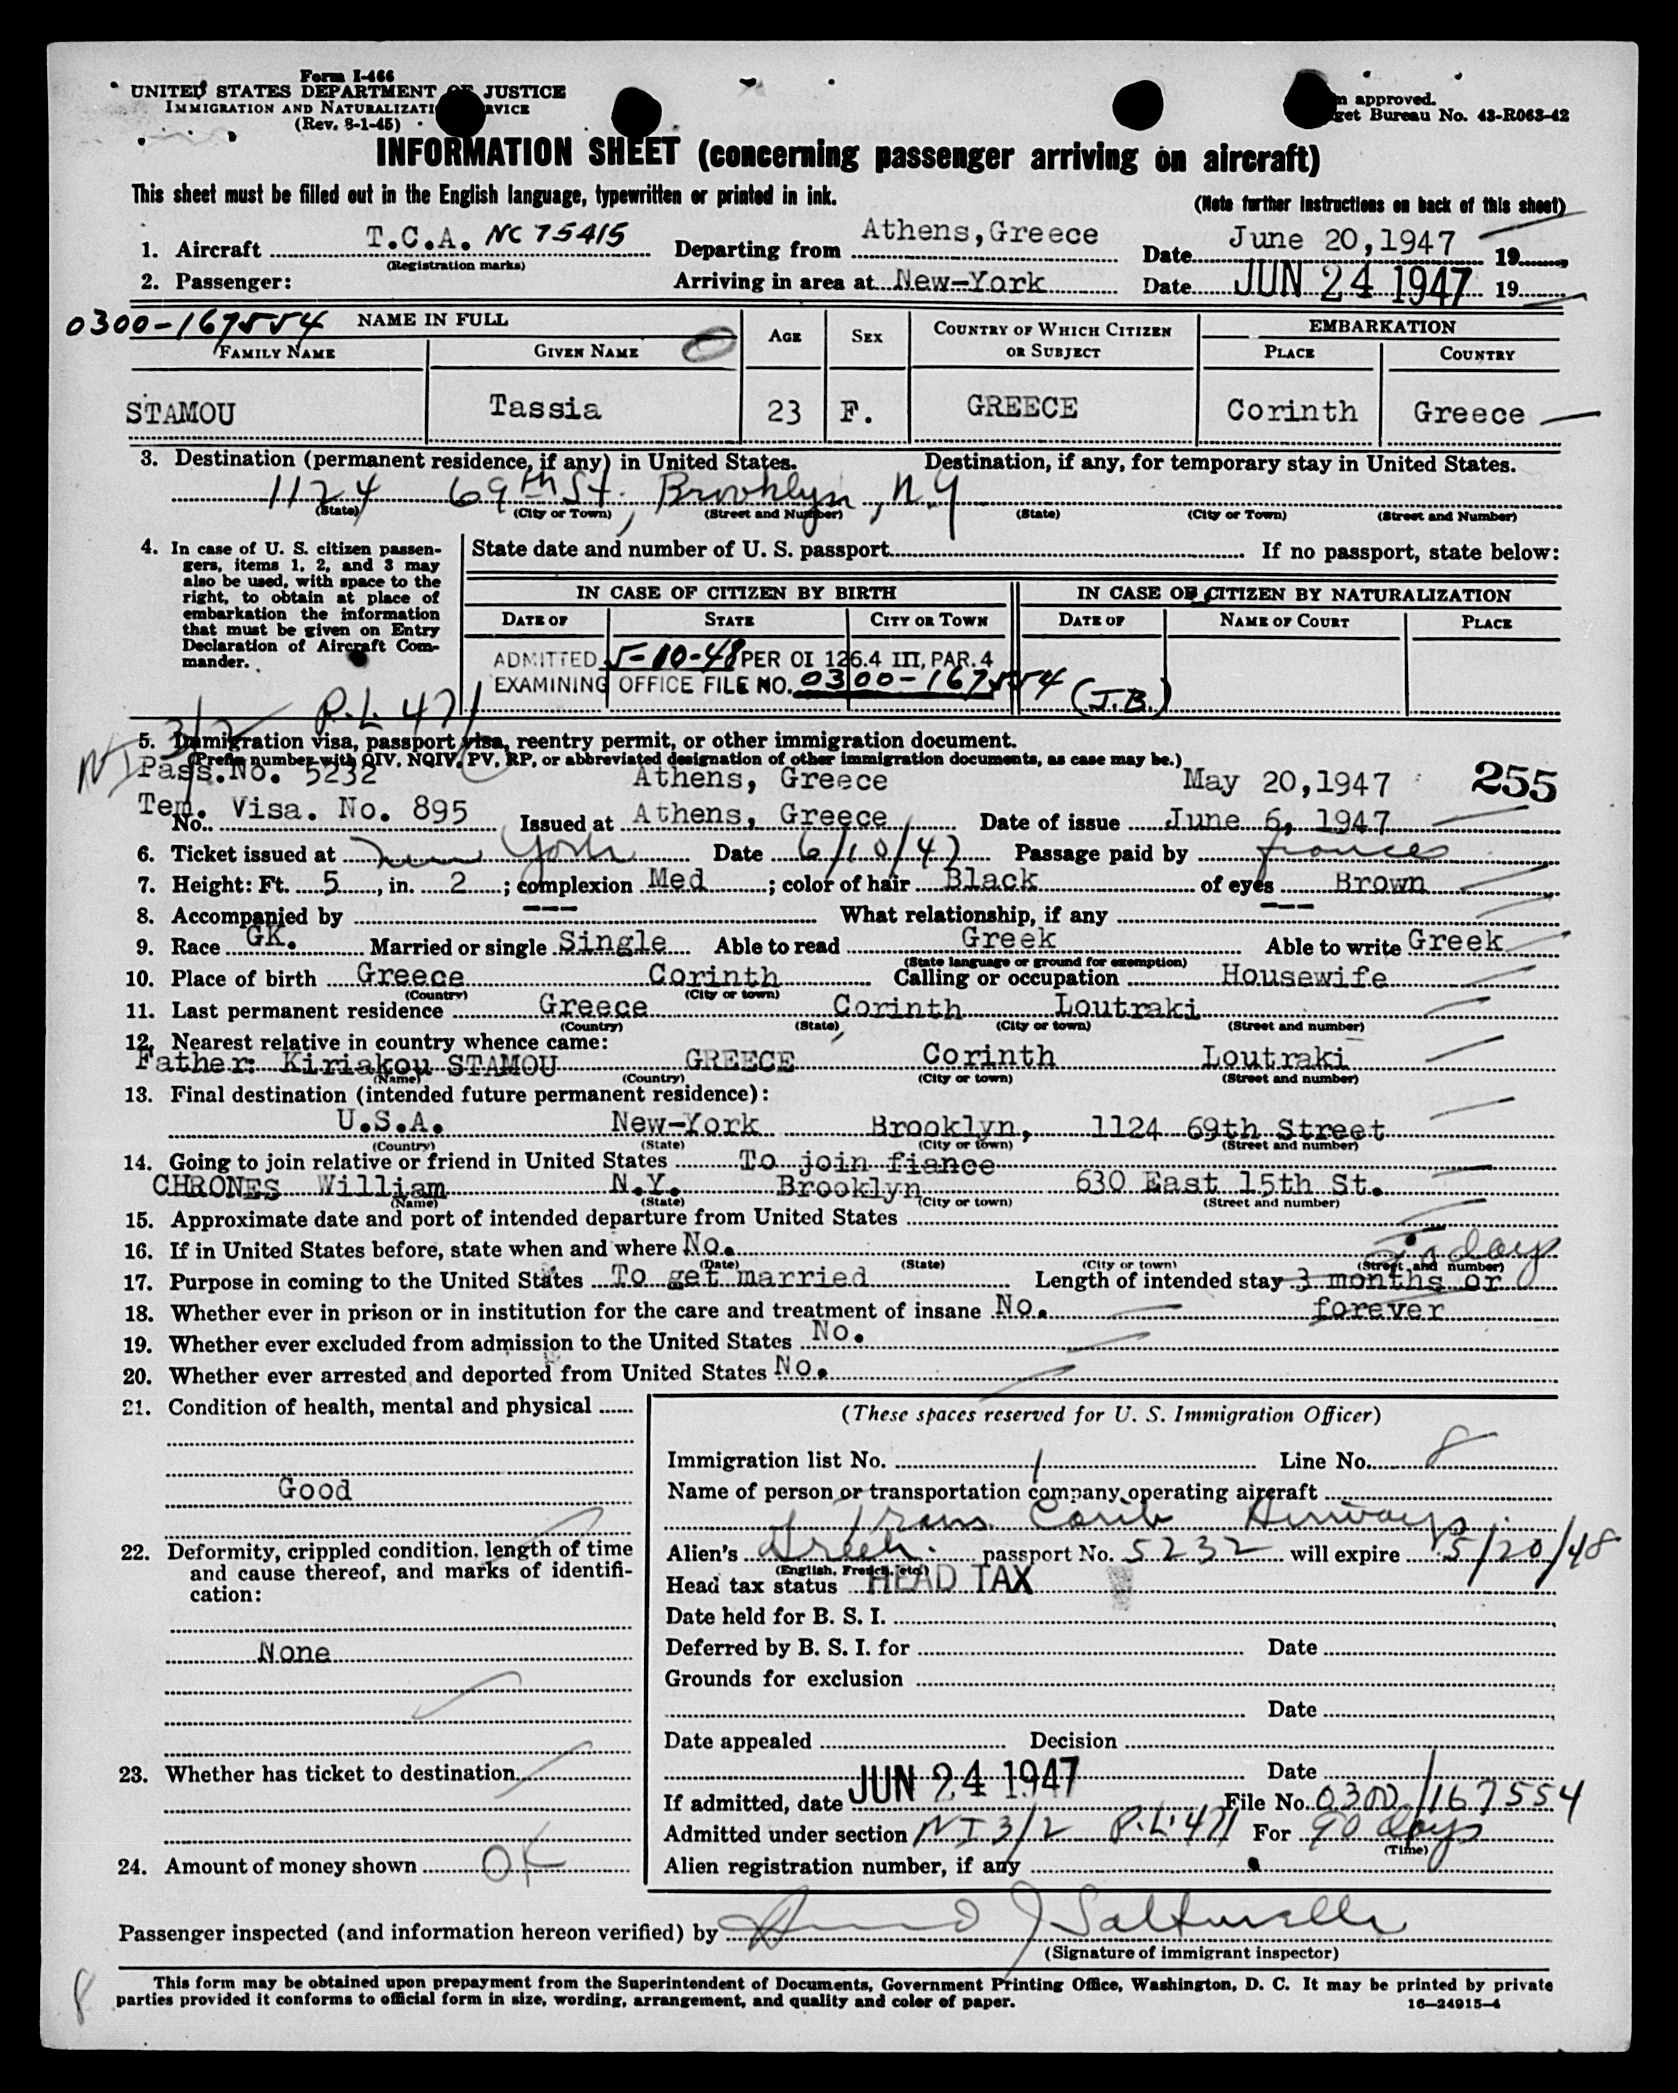 Form I-466
UNITED STATES DEPARTMENT OF JUSTICE
IMMIGRATION AND NATURALIZATION SERVICE
(Rev. 8-1-45)
approved.
Bureau No. 43-R063-42
INFORMATION SHEET (concerning passenger arriving on aircraft)
This sheet must be filled out in the English language, typewritten or printed in ink.
(Note further instructions on back of this sheet)
1. Aircraft T.C.A. NC 75415 Departing from Athens, Greece Date June 20, 1947 19
(Registration marks)
2. Passenger: Arriving in area at New-York Date JUN 24 1947 19
0300-167554 NAME IN FULL AGE SEX COUNTRY OF WHICH CITIZEN OR SUBJECT EMBARKATION
FAMILY NAME GIVEN NAME PLACE COUNTRY
STAMOU Tassia 23 F. GREECE Corinth Greece
3. Destination (permanent residence, if any) in United States. Destination, if any, for temporary stay in United States.
1124 69th St., Brooklyn, N.Y
(State) (City or Town) (Street and Number) (State) (City or Town) (Street and Number)
4. In case of U. S. citizen passengers, items 1, 2, and 3 may also be used, with space to the right, to obtain at place of embarkation the information that must be given on Entry Declaration of Aircraft Commander.
State date and number of U. S. passport If no passport, state below:
IN CASE OF CITIZEN BY BIRTH IN CASE OF CITIZEN BY NATURALIZATION
DATE OF STATE CITY OR TOWN DATE OF NAME OF COURT PLACE
ADMITTED 5-10-48 PER OI 126.4 III, PAR. 4
EXAMINING OFFICE FILE NO. 0300-167554 (J.B.)
NI 3/2 P.L. 471
5. Immigration visa, passport visa, reentry permit, or other immigration document.
(Prefix number with QIV, NQIV, PV, RP, or abbreviated designation of other immigration documents, as case may be.)
Pass. No. 5232 Athens, Greece May 20, 1947 255
Tem. Visa. No. 895
No. Issued at Athens, Greece Date of issue June 6, 1947
6. Ticket issued at New York Date 6/10/47 Passage paid by fiances
7. Height: Ft. 5, in. 2; complexion Med; color of hair Black of eyes Brown
8. Accompanied by --- What relationship, if any ---
9. Race GK. Married or single Single Able to read Greek Able to write Greek
(State language or ground for exemption)
10. Place of birth Greece Corinth Calling or occupation Housewife
(Country) (City or town)
11. Last permanent residence Greece Corinth Loutraki
(Country) (State) (City or town) (Street and number)
12. Nearest relative in country whence came:
Father: Kiriakou STAMOU GREECE Corinth Loutraki
(Name) (Country) (City or town) (Street and number)
13. Final destination (intended future permanent residence):
U.S.A. New-York Brooklyn, 1124 69th Street
(Country) (State) (City or town) (Street and number)
14. Going to join relative or friend in United States To join fiance
CHRONES William N.Y. Brooklyn 630 East 15th St.
(Name) (State) (City or town) (Street and number)
15. Approximate date and port of intended departure from United States
16. If in United States before, state when and where No. days
(Date) (State) (City or town) (Street and number)
17. Purpose in coming to the United States To get married Length of intended stay 3 months or
18. Whether ever in prison or in institution for the care and treatment of insane No. forever
19. Whether ever excluded from admission to the United States No.
20. Whether ever arrested and deported from United States No.
21. Condition of health, mental and physical
Good
22. Deformity, crippled condition, length of time and cause thereof, and marks of identification:
None
23. Whether has ticket to destination
24. Amount of money shown OK
(These spaces reserved for U. S. Immigration Officer)
Immigration list No. 1 Line No. 8
Name of person or transportation company operating aircraft
Trans Carib Airways
Alien's Greek passport No. 5232 will expire 5/20/48
(English, French, etc.)
Head tax status HEAD TAX
Date held for B. S. I.
Deferred by B. S. I. for Date
Grounds for exclusion
Date
Date appealed Decision
Date
If admitted, date JUN 24 1947 File No. 0300/167554
Admitted under section NI 3/2 P.L. 471 For 90 days
(Time)
Alien registration number, if any
Passenger inspected (and information hereon verified) by
(Signature of immigrant inspector)
8
This form may be obtained upon prepayment from the Superintendent of Documents, Government Printing Office, Washington, D. C. It may be printed by private
parties provided it conforms to official form in size, wording, arrangement, and quality and color of paper.
16—24915-4